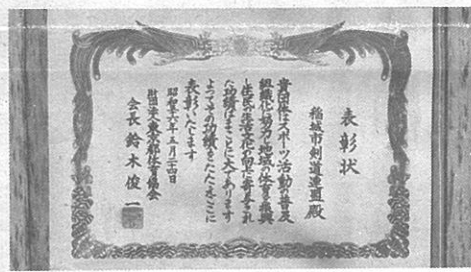 表彰状
稲城市剣道連盟殿
貴団体はスポーツ活動の普及
組織化に努力し地域の体育の振興
と住民の生活文化の向上に寄与され
た功績はまことに大であります
よってその功績をたたえここに
表彰いたします
昭和五十六年五月二十四日
財団法人東京都体育協会
会長 鈴木俊一